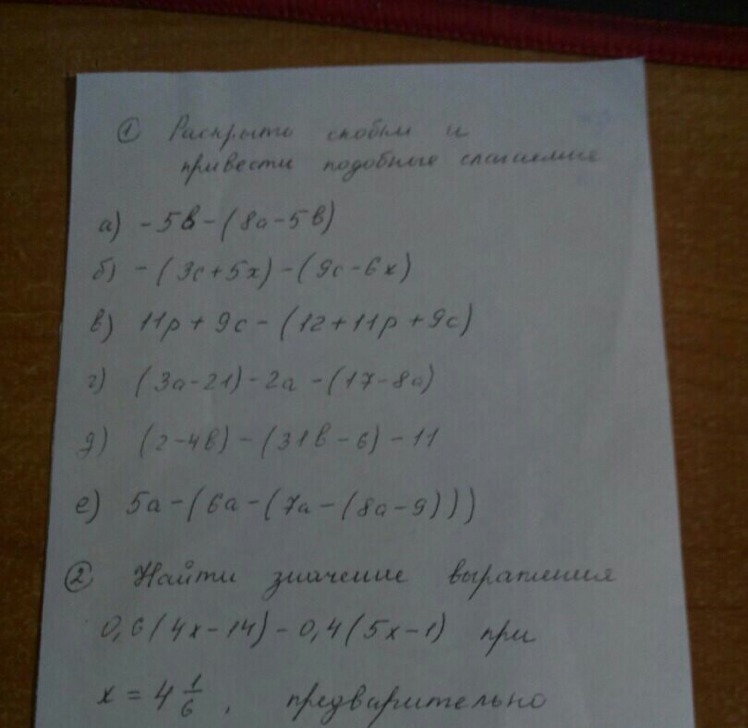 ① Раскрыть скобки и
привести подобные слагаемые
а) -5в-(8а-5в)
б) -(3с+5х)-(9с-6х)
в) 11р+9с-(12+11р+9с)
г) (3а-21)-2а-(17-8а)
д) (2-4в)-(31в-6)-11
е) 5а-(6а-(7а-(8а-9)))
② Найти значение выражения
0,6(4х-14)-0,4(5х-1) при
х = 4 1/6, предварительно